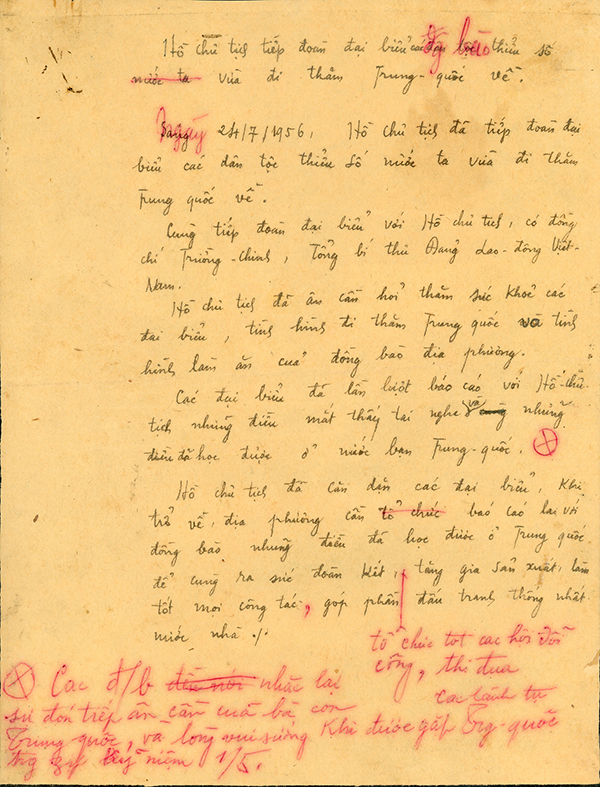 Hồ chủ tịch tiếp đoàn đại biểu các dân tộc thiểu số
nước ta vừa đi thăm Trung-quốc về.
Ngày 24/7/1956, Hồ Chủ tịch đã tiếp đoàn đại
biểu các dân tộc thiểu số nước ta vừa đi thăm
Trung quốc về.
Cùng tiếp đoàn đại biểu với Hồ chủ tịch, có đồng
chí Trường-Chinh, Tổng bí thư Đảng Lao-động Việt-
Nam.
Hồ chủ tịch đã ân cần hỏi thăm sức khoẻ các
đại biểu, tình hình đi thăm Trung quốc và tình
hình làm ăn của đồng bào địa phương.
Các đại biểu đã lần lượt báo cáo với Hồ-chủ
tịch những điều mắt thấy tai nghe và những
điều đã học được ở nước bạn Trung-quốc.
Hồ chủ tịch đã căn dặn các đại biểu, khi
trở về, địa phương cần tổ chức báo cáo lại với
đồng bào những điều đã học được ở Trung quốc
để cùng ra sức đoàn kết, tăng gia sản xuất, làm
tốt mọi công tác, góp phần đấu tranh thống nhất
nước nhà ./.
tổ chức tot cac hội đổi
công, thi đua
Cac đ/b đều nói nhắc lại
sự đón tiếp ân cần của bà con
Trung quốc, và lòng vui sướng khi được gặp
các lãnh tụ
Trg-quốc
trg kỷ niệm 1/5.